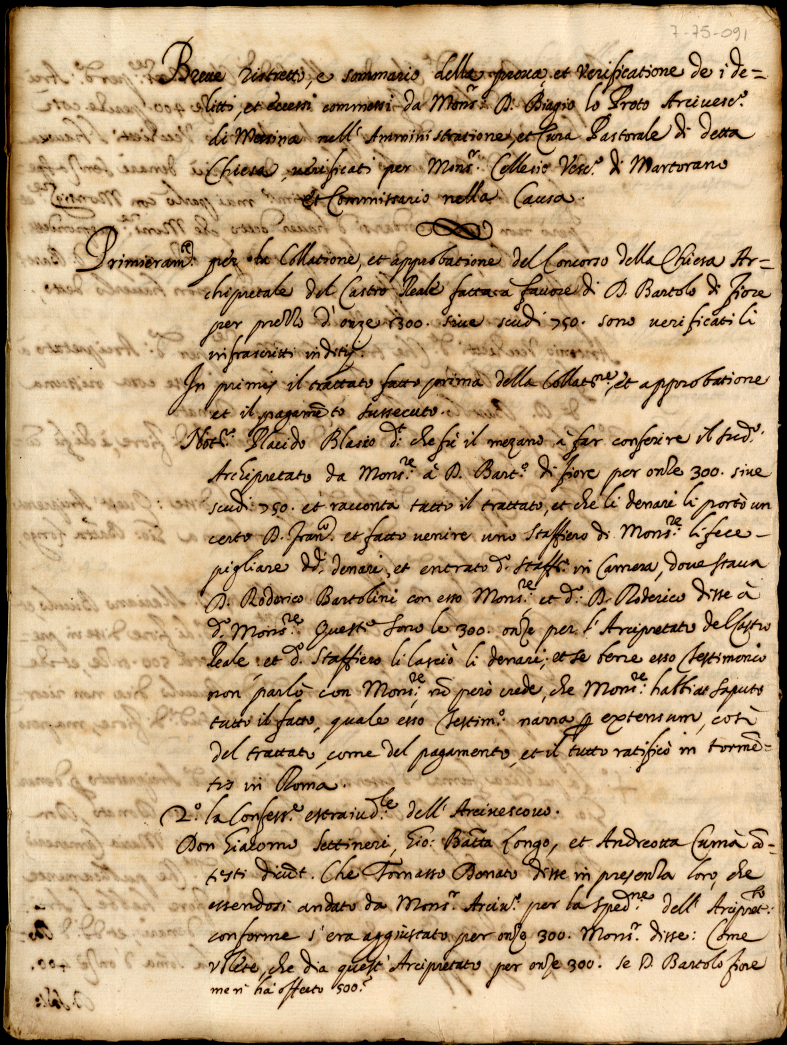 7-75-091
Breve ristretto, e sommario della prova, et verificatione de i de=
litti, et eccessi commessi da Mons.r D. Biagio lo Proto Arcivesc.o
di Messina nell' Amministratione, et Cura Pastorale di detta
Chiesa, verificati per Mons.r Cellesio Vesc.o di Martorano
et Commissario nella Causa.
Primieram.te per la Collatione, et approbatione del Concorso della Chiesa Ar=
chipretale del Castro Reale fatta a favore di D. Bartolo di fiore
per prezzo d'onze 1300. sive scudi 750. sono verificati li
infrascritti inditij.
In primis il trattato fatto prima della Collat.ne, et approbatione
et il pagamẽto sussecuto.
Not.r Placido Blasio d.e che fù il mezano à far conferire il sud.o
Archipretato da Mons.re à D. Bart.o di fiore per onze 300. sive
scudi 750. et racconta tutto il trattato, et che li denari li portò un
certo D. Fran.co et fatto venire uno staffiero di Mons.re li fece
pigliare dd.i denari, et entrato d.o staff.o in Camera, dove stava
D. Roderico Bartolini con esso Mons.re et d.o D. Roderico disse à
d.o Mons.re Queste sono le 300. onze per l'Arcipretato del Castro
Reale: et d.o Staffiero li lasciò li denari; et se bene esso testimonio
non parlò con Mons.re, nõ però crede, che Mons.re habbia saputo
tutto il fatto, quale esso testim.o narra p extensum, così
del trattato, come del pagamento, et il tutto ratificò in tormẽ=
tis in Roma.
2.o la Confess.e estraiud.le dell' Arcivescovo.
Don Giacomo Settineri, Gio: Batta Longo, et Andreotta Cumà
testi dicũt. Che Tomasso Donato disse in presenza loro, che
essendosi andato da Mons.r Arciv.o per la sped.ne dell' Arcipret.to
conforme s'era aggiustato per onze 300. Mons.r disse: Come
volete, che dia quest' Arcipretato per onze 300. se D. Bartolo fiore
me n'hà offerto 500.